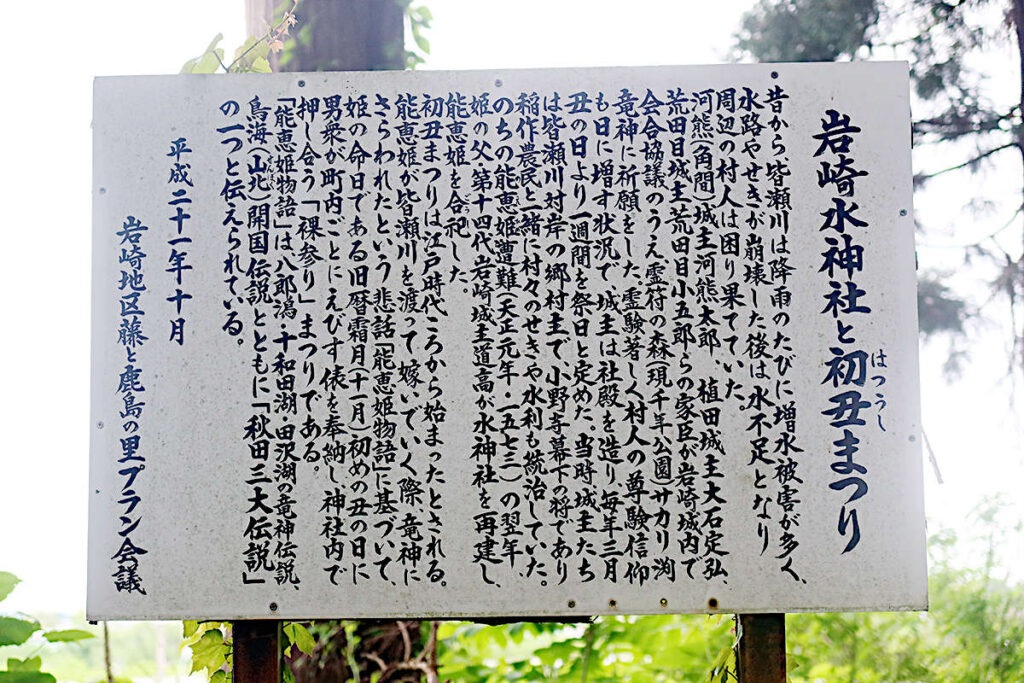 岩崎水神社と初丑まつり
はつうし
昔から、皆瀬川は降雨のたびに増水被害が多く、
水路やせきが崩壊した後は水不足となり
周辺の村人は困り果てていた。
河熊(角間)城主河熊太郎、植田城主大石定弘、
荒田目城主荒田目小五郎らの家臣が岩崎城内で
会合協議のうえ、霊符の森(現千年公園)サカリ渕
竜神に祈願をした。霊験著しく村人の尊験信仰
も日に増す状況で、城主は社殿を造り、毎年三月
丑の日より一週間を祭日と定めた。当時城主たち
は皆瀬川対岸の郷村主で、小野寺幕下の将であり
稲作農民と一緒に村々のせきや水利も統治していた。
のちの能恵姫遭難(天正元年・一五七三)の翌年
姫の父、第十四代岩崎城主道高が水神社を再建し、
能恵姫を合祀した。
初丑まつりは江戸時代ごろから始まったとされる。
能恵姫が皆瀬川を渡って、嫁いでいく際、竜神に
さらわれたという、悲話「能恵姫物語」に基づいて、
姫の命日である旧暦霜月(十一月)初めの丑の日に
男衆が町内ごとにえびす俵を奉納し、神社内で
押し合う「裸参り」まつりである。
「能恵姫物語」は八郎潟・十和田湖・田沢湖の竜神伝説、
鳥海(山北)開国伝説」とともに「秋田三大伝説」
せんぼく
の一つと伝えられている。
平成二十一年十月
岩崎地区藤と鹿島の里プラン会議